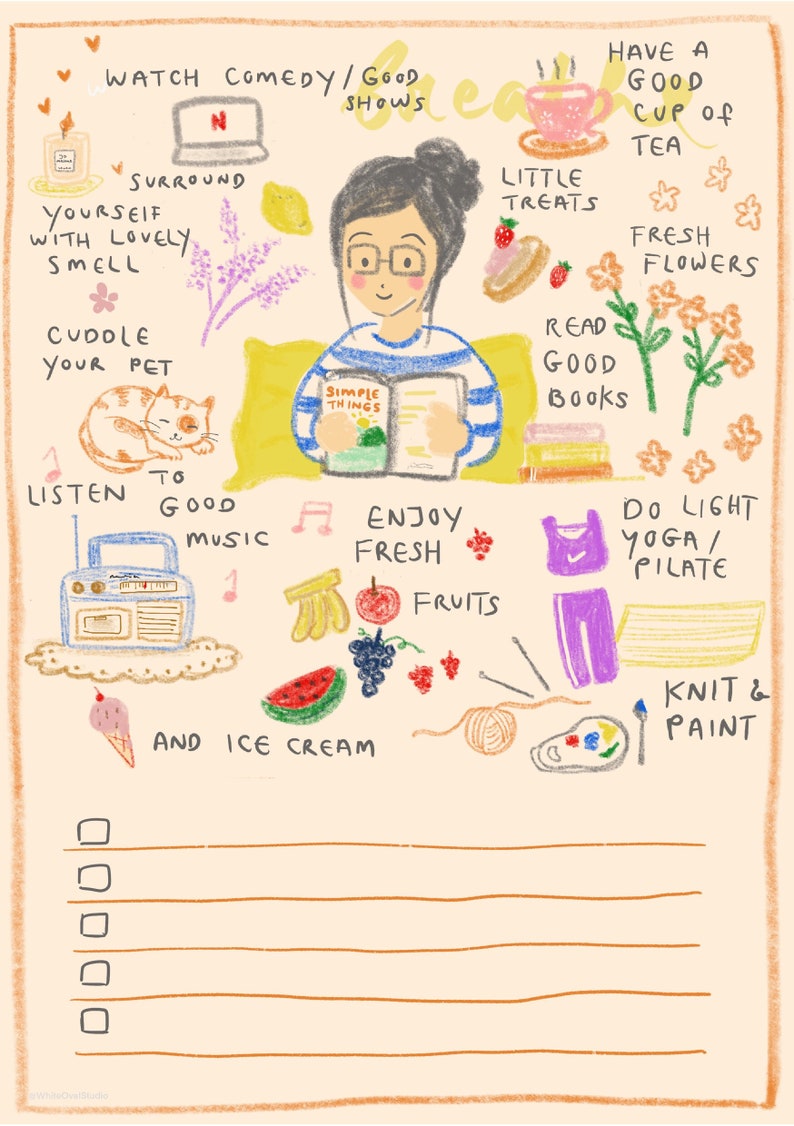 breathe
WATCH COMEDY/GOOD
SHOWS
N
HAVE A
GOOD
CUP OF
TEA
SURROUND
YOURSELF
WITH LOVELY
SMELL
LITTLE
TREATS
FRESH
FLOWERS
CUDDLE
YOUR PET
READ
GOOD
BOOKS
SIMPLE
THINGS
LISTEN TO
GOOD
MUSIC
ENJOY
FRESH
FRUITS
DO LIGHT
YOGA/
PILATE
KNIT &
PAINT
AND ICE CREAM
@WhiteOvetStudio